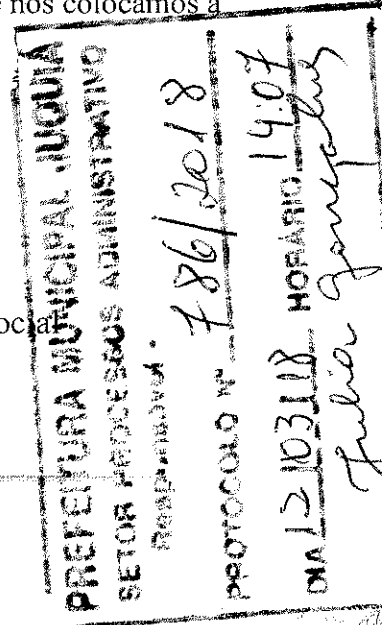 e nos colocamos à
ocial
PREFEITURA MUNICIPAL JUQUIÁ
SETOR PROCESSOS ADMINISTRATIVO
Responsável
PROTOCOLO Nº 786/2018
DIA 12/03/18 HORÁRIO 14:07
Julia Gonçalves